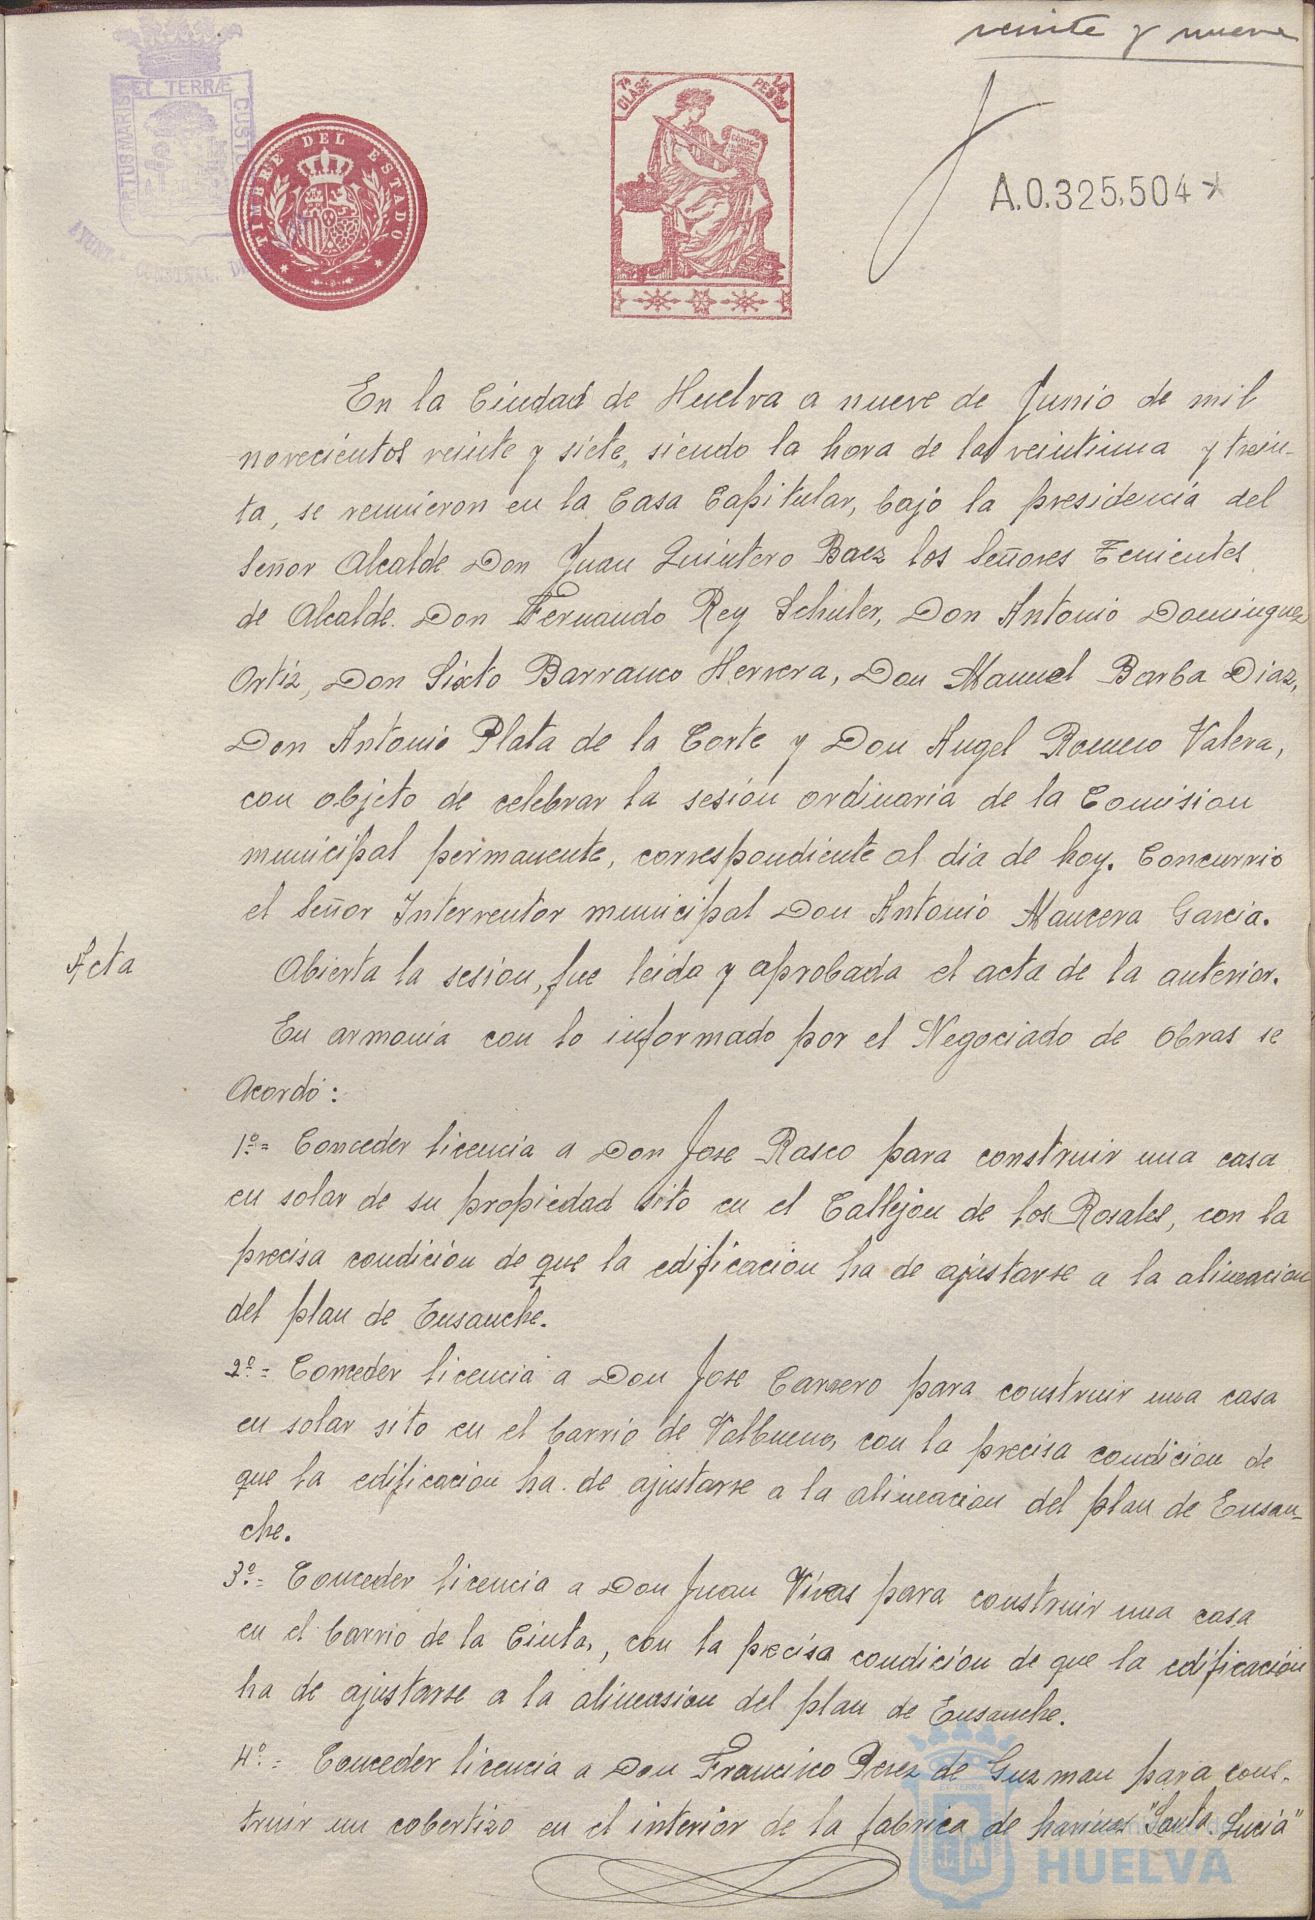 veinte y nueve
ET TERRÆ
PORTUS MARIS
CUSTODIA
TIMBRE DEL ESTADO
7ª CLASE
PESETAS
CODIGO
A.0.325,504*
En la Ciudad de Huelva a nueve de Junio de mil
novecientos veinte y siete, siendo la hora de las veintiuna y trein-
ta, se reunieron en la Casa Capitular, bajo la presidencia del
Señor Alcalde Don Juan Quintero Baez los Señores Tenientes
de Alcalde. Don Fernando Rey Schuler, Don Antonio Dominguez
Ortiz, Don Sixto Barranco Herrera, Don Manuel Barba Diaz,
Don Antonio Plata de la Corte y Don Angel Romero Valera,
con objeto de celebrar la sesión ordinaria de la Comision
municipal permanente, correspondiente al dia de hoy. Concurrio
el Señor Interventor municipal Don Antonio Mancera Garcia.
Acta
Abierta la sesion, fue leida y aprobada el acta de la anterior.
En armonia con lo informado por el Negociado de Obras se
Acordó:
1º.= Conceder licencia a Don Jose Rasco para construir una casa
en solar de su propiedad sito en el Callejon de los Rosales, con la
precisa condición de que la edificacion ha de ajustarse a la alineacion
del plan de Ensanche.
2º.= Conceder licencia a Don Jose Carsero para construir una casa
en solar sito en el barrio de Valbuena, con la precisa condicion de
que la edificacion ha de ajustarse a la alineacion del plan de Ensan-
che.
3º.= Conceder licencia a Don Juan Vivas para construir una casa
en el barrio de la Cinta, con la precisa condición de que la edificación
ha de ajustarse a la alineasion del plan de Ensanche.
4º.= Conceder licencia a Don Francisco Perez de Guzman para cons-
truir un cobertizo en el interior de la fabrica de harinas "Santa Lucia"
HUELVA